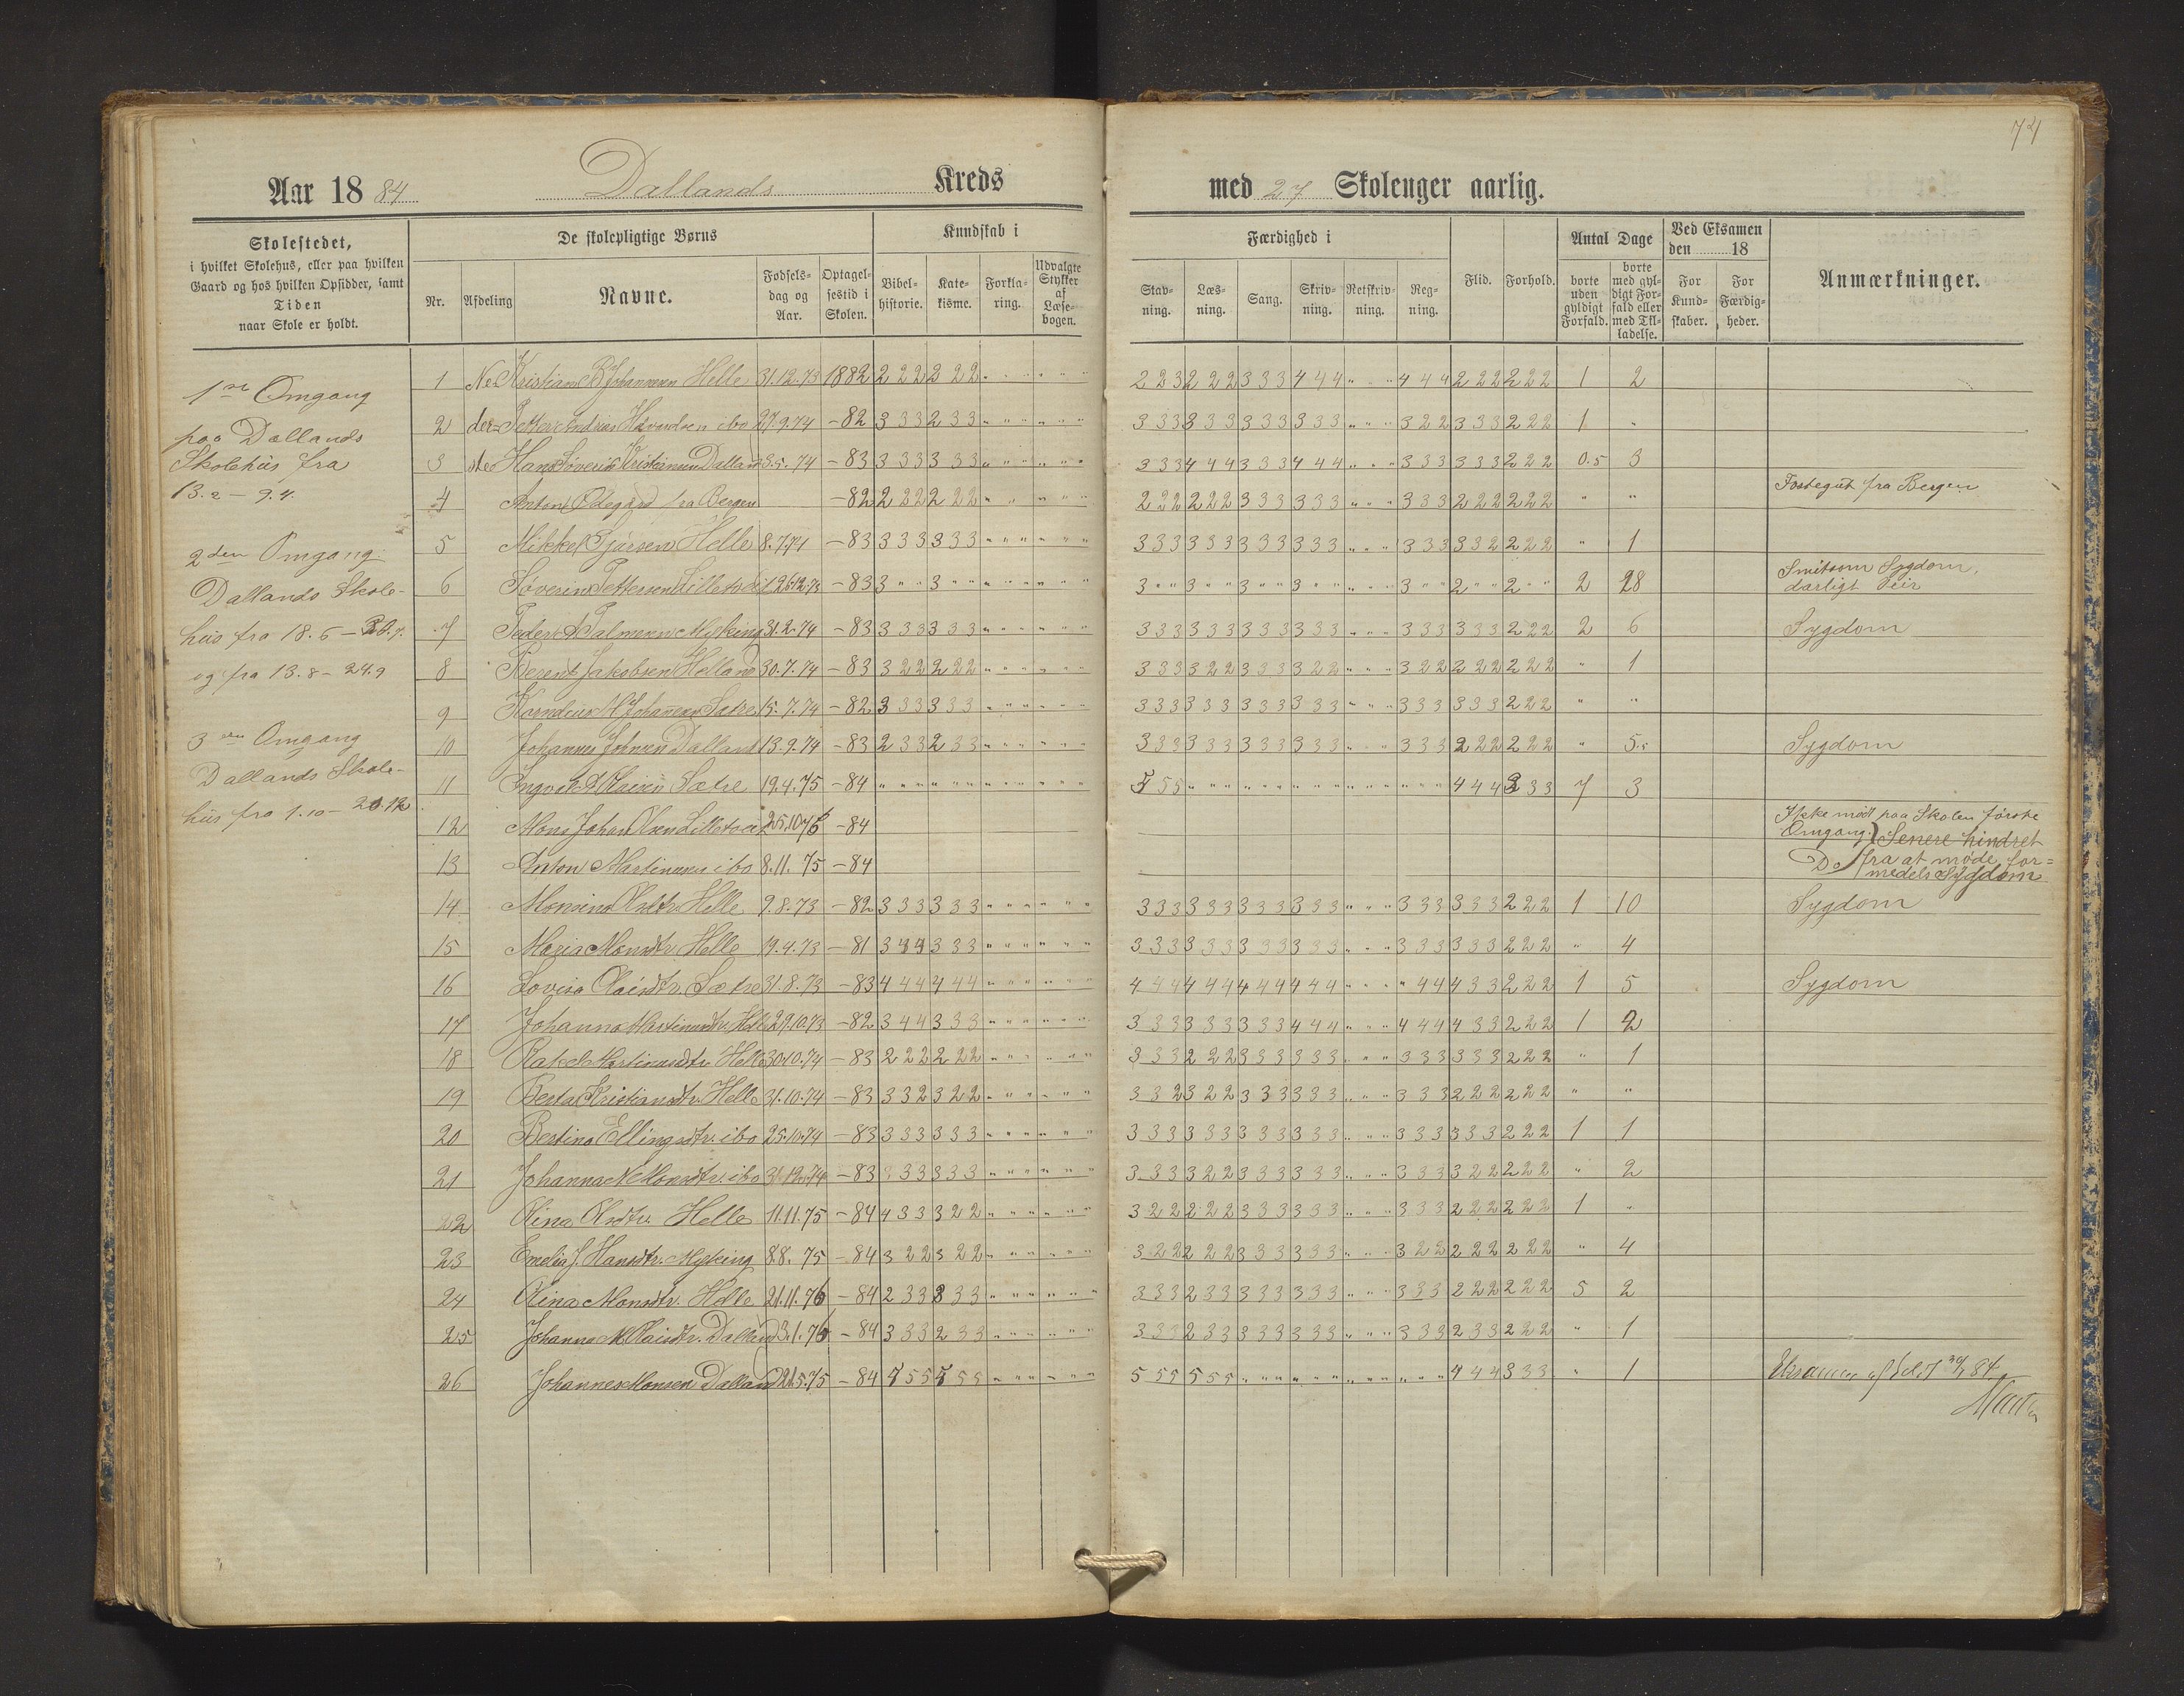 74
Aar 1884 Dallands Kreds med 27 Skoleuger aarlig.
Skolestedet, i hvilket Skolehus, eller paa hvilken Gaard og hos hvilken Opsidder, samt Tiden naar Skole er holdt.
De skolepligtige Børns
Nr. Afdeling Navne. Fødselsdag og Aar. Optagelsestid i Skolen.
Kundskab i
Bibelhistorie. Katekisme. Forklaring. Udvalgte Stykker af Læsebogen.
Færdighed i
Stavning. Læsning. Sang. Skrivning. Retskrivning. Regning.
Flid. Forhold.
Antal Dage
borte uden gyldigt Forfald. borte med gyldigt Forfald eller med Tilladelse.
Ved Eksamen den 18
For Kundskaber. For Færdigheder.
Anmærkninger.
1ste Omgang
paa Dallands
Skolehus fra
13.2 – 9.4.
2den Omgang
Dallands Skole-
hus fra 18.6 –
og fra 13.8 – 24.9
3die Omgang
Dallands Skole-
hus fra 1.10 – 20.12
1 Ne- Kristian B Johannesen Helle 31.12.73 1882 2 2 2 2 2 2 " " " " " " 2 2 3 2 2 2 3 3 3 4 4 4 " " " 4 4 4 2 2 2 2 2 2 1 2
2 der- Petter Andreas ibo 27.9.74 – 82 3 3 3 2 3 3 " " " " " " 3 3 3 3 3 3 3 3 3 3 3 3 " " " 3 2 2 3 3 3 2 2 2 1 "
3 ste Hans Søverin Kristiansen Dalland 3.5.74 – 83 3 3 3 3 3 3 " " " " " " 3 3 3 4 4 4 3 3 3 4 4 4 " " " 3 3 3 3 3 3 2 2 2 0.5 3
4 Anton Ødegård fra Bergen – 82 2 2 2 2 2 2 " " " " " " 2 2 2 2 2 2 3 3 3 3 3 3 " " " 3 3 3 2 2 2 2 2 2 " " Fostegut fra Bergen
5 Mikkel Helle 8.7.74 – 83 3 3 3 3 3 3 " " " " " " 3 3 3 3 3 3 3 3 3 3 3 3 " " " 3 3 3 3 3 2 2 2 2 " 1
6 Søverin Pettersen Lilletvedt 26.12.73 – 83 3 " " 3 " " " " " " " " 3 " " 3 " " 3 " " 3 " " " " " 3 " " 2 " " 2 " " 2 28 Smitsom Sygdom, darligt Veir
7 Peder A Palmesen Myking 31.2.74 – 83 3 3 3 3 3 3 " " " " " " 3 3 3 3 3 3 3 3 3 3 3 3 " " " 3 3 3 3 3 3 2 2 2 2 6 Sygdom
8 Berent Jakobsen Helland 30.7.74 – 83 3 2 2 2 2 2 " " " " " " 3 3 3 3 2 2 3 3 3 3 2 2 " " " 3 2 2 2 2 2 2 2 2 " 1
9 Kornelius M Johannesen Sætre 15.7.74 – 82 3 3 3 3 3 3 " " " " " " 3 3 3 3 3 3 3 3 3 3 3 3 " " " 3 3 3 3 3 3 2 2 2 " "
10 Johannes Johnsen Dalland 13.9.74 – 83 2 3 3 2 3 3 " " " " " " 3 3 3 3 3 3 3 3 3 3 3 3 " " " 3 3 3 2 2 2 2 2 2 " 5.5 Sygdom
11 Ingvald Olaisen Sætre 19.4.75 – 84 " " " " " " " " " " " " 5 5 5 " " " " " " " " " " " " " " " 4 4 4 3 3 3 7 3
12 Mons Johan Olsen Lilletvedt 25.10.76 – 84 Ikke mødt paa Skolen første Omgang. Senere hindret
13 Anton Martinusen ibo 8.11.75 – 84 Do fra at møde formedels Sygdom
14 Monsina Olsdtr. Helle 9.8.73 – 82 3 3 3 3 3 3 " " " " " " 3 3 3 3 3 3 3 3 3 3 3 3 " " " 3 3 3 3 3 3 2 2 2 1 10 Sygdom
15 Maria Monsdtr. Helle 19.4.73 – 81 3 4 4 3 3 3 " " " " " " 3 3 3 3 3 3 3 3 3 3 3 3 " " " 3 3 3 3 3 3 2 2 2 " 4
16 Lovisa Olaisdtr. Sætre 31.8.73 – 83 4 4 4 4 4 4 " " " " " " 4 4 4 4 4 4 4 4 4 4 4 4 " " " " 4 4 4 3 3 2 2 2 1 5 Sygdom
17 Johanna Martinusdtr. Helle 29.10.73 – 82 3 4 4 3 3 3 " " " " " " 3 3 3 3 3 3 3 3 3 4 4 4 " " " 4 4 4 4 3 3 2 2 2 1 2
18 Rakel Martinusdtr. Helle 30.10.74 – 83 2 2 2 2 2 2 " " " " " " 3 3 3 2 2 2 3 3 3 3 3 3 " " " 3 3 3 3 3 3 2 2 2 " 1
19 Berta Kristiansdtr. Helle 31.10.74 – 83 3 3 2 3 2 2 " " " " " " 3 3 2 3 2 2 3 3 3 3 3 3 " " " 3 3 3 2 2 2 2 2 2 " "
20 Bertina Ellingsdtr. ibo 25.10.74 – 83 3 3 3 3 3 3 " " " " " " 3 3 3 3 3 3 3 3 3 3 3 3 " " " 3 3 3 3 3 3 2 2 2 1 1
21 Johanna N Monsdtr. ibo 31.12.74 – 83 3 3 3 3 3 3 " " " " " " 3 3 3 3 2 2 3 3 3 3 3 3 " " " 3 3 3 3 2 2 2 2 2 " 2
22 Olina Olsdtr. Helle 11.11.75 – 84 4 3 3 3 2 2 " " " " " " 3 2 2 2 2 2 3 3 3 3 3 3 " " " 3 3 3 2 2 2 2 2 2 1 "
23 Emelia J. Hansdtr. Myking 8.8.75 – 84 3 2 2 3 2 2 " " " " " " 3 2 2 2 2 2 3 3 3 3 3 3 " " " 3 2 2 2 2 2 2 2 2 " 4
24 Olina Monsdtr. Helle 21.11.76 – 84 2 3 3 3 3 3 " " " " " " 3 3 3 2 3 3 3 3 3 3 3 3 " " " 3 3 3 2 2 2 2 2 2 5 2
25 Johanna M Olaisdtr. Dalland 3.1.76 – 84 3 3 3 2 3 3 " " " " " " 3 3 3 2 3 3 3 3 3 3 3 3 " " " 3 3 3 2 3 3 2 2 2 " 1
26 Johannes Monsen Dalland 21.5.75 – 84 5 5 5 5 " " " " " " 5 5 5 5 5 5 " " " " " " " " " " " " 4 4 4 3 3 3 " 1 Eksamen afholdt 84